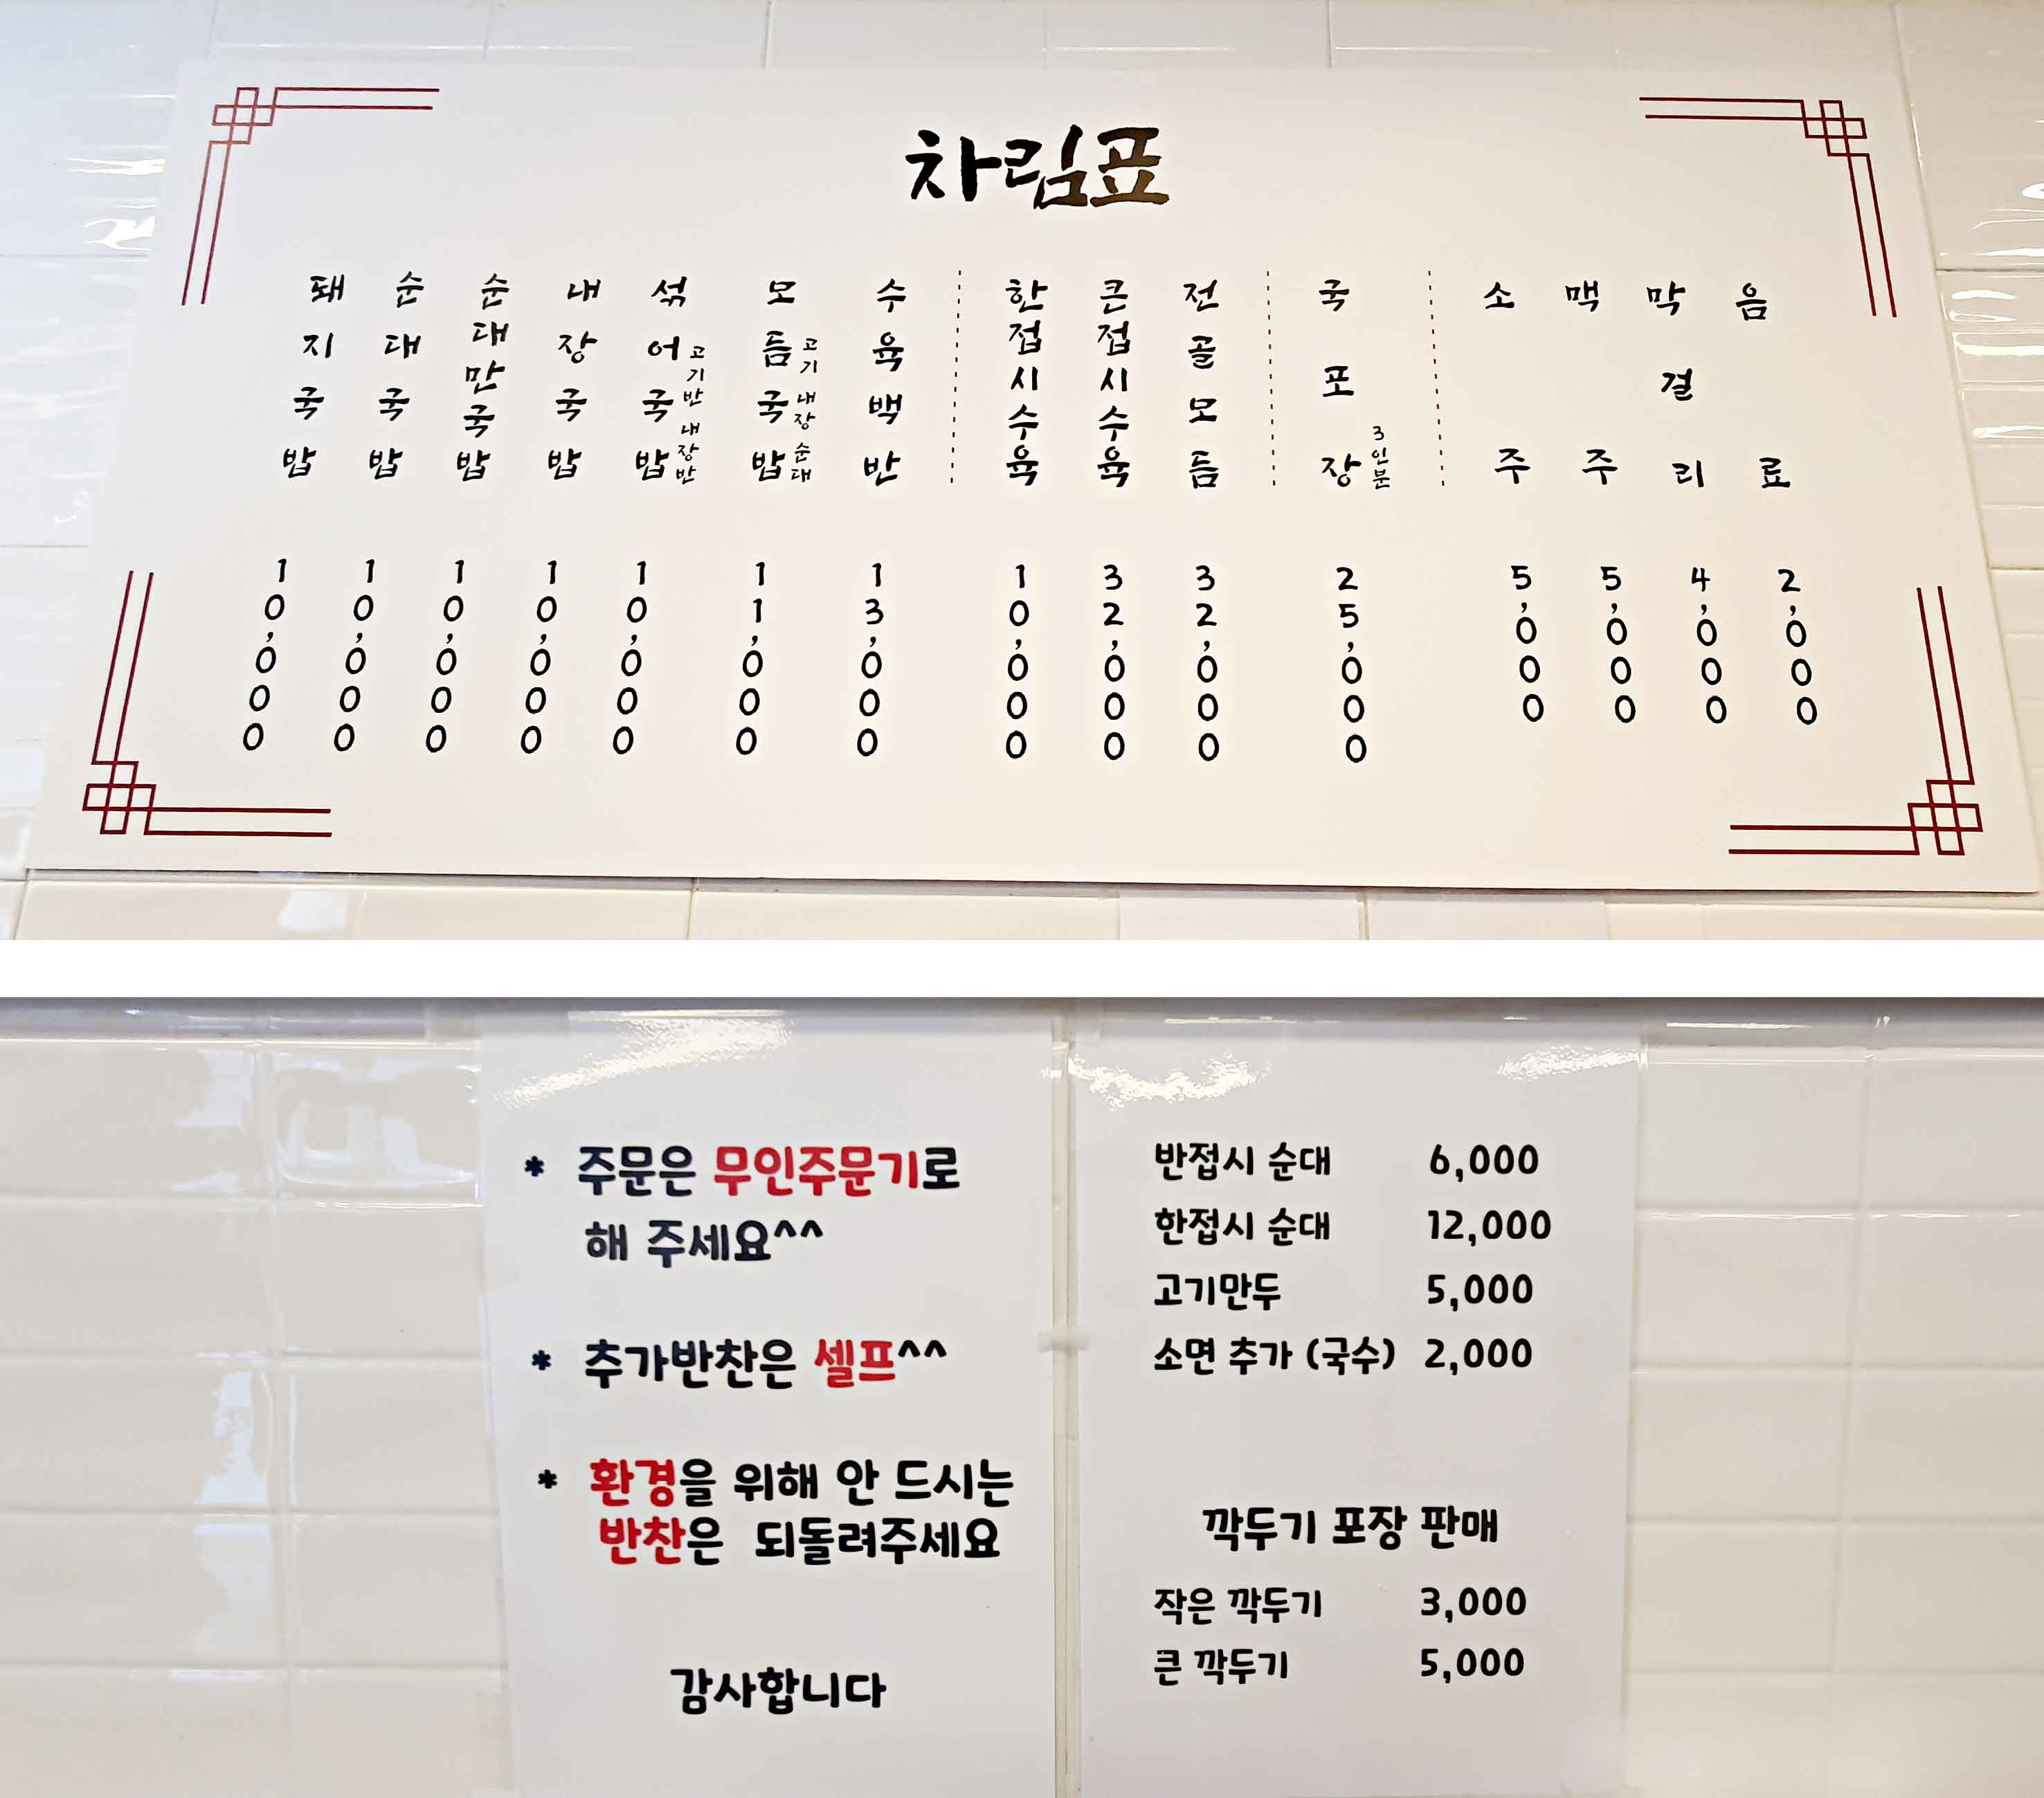 차림표
돼지국밥 10,000
순대국밥 10,000
순대만국밥 10,000
내장국밥 10,000
섞어국밥 고기반 내장반 10,000
모듬국밥 고기 내장 순대 11,000
수육백반 13,000
한접시수육 10,000
큰접시수육 32,000
전골모듬 32,000
국포장 3인분 25,000
소주 5,000
맥주 5,000
막걸리 4,000
음료 2,000
* 주문은 무인주문기로
해 주세요^^
* 추가반찬은 셀프^^
* 환경을 위해 안 드시는
반찬은 되돌려주세요
감사합니다
반접시 순대 6,000
한접시 순대 12,000
고기만두 5,000
소면 추가 (국수) 2,000
깍두기 포장 판매
작은 깍두기 3,000
큰 깍두기 5,000